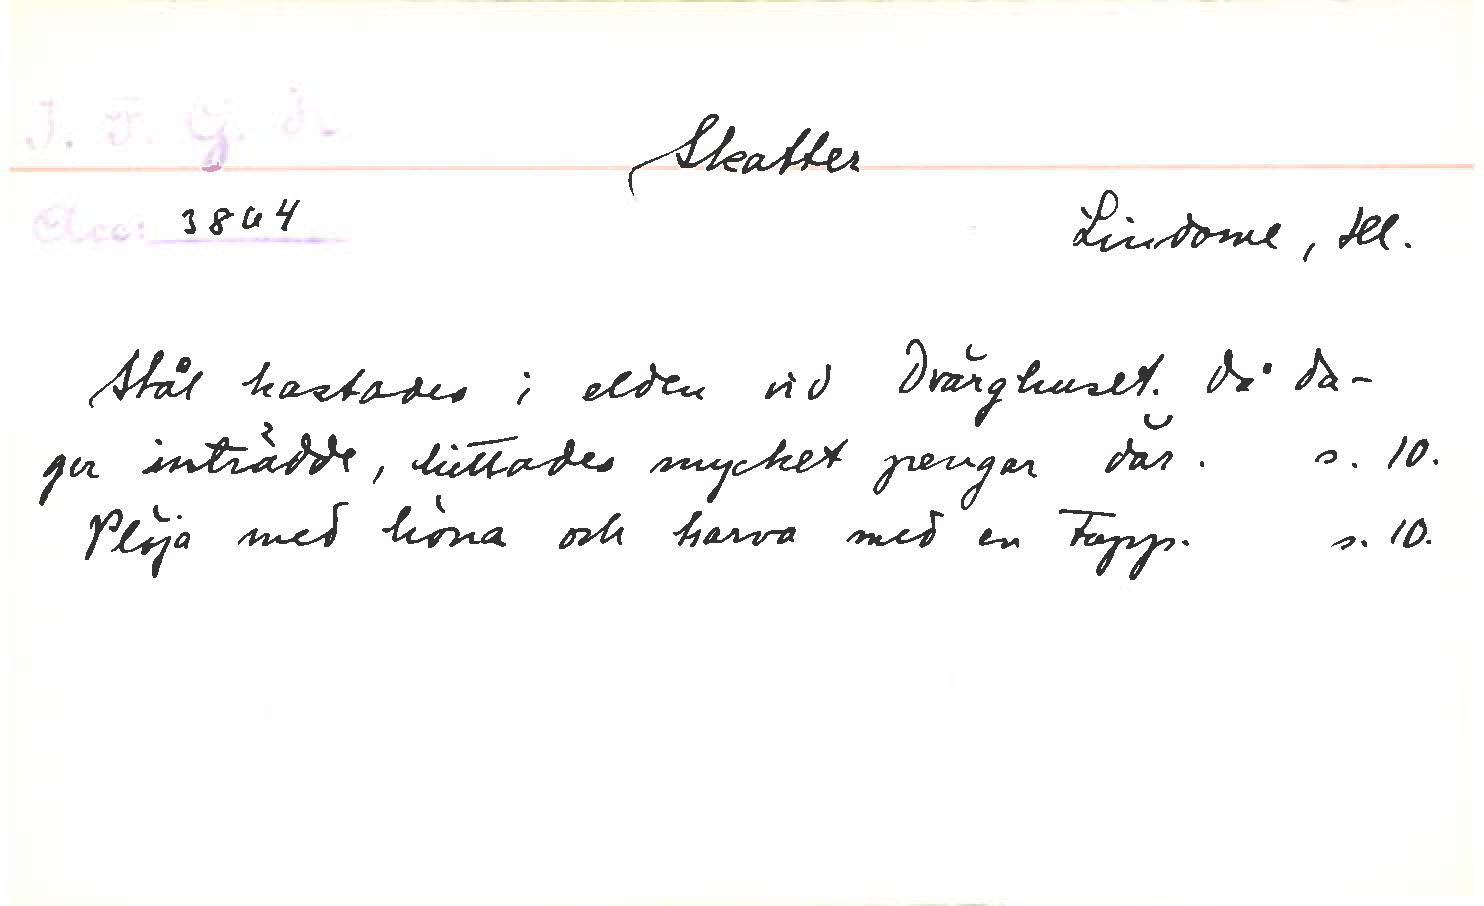 I. F. G. H.
Skatter
Acc: 3864
Lindome, Hll.
Stål kastades i elden vid Dvärghuset. Då da-
ger inträdde, hittades mycket pengar där. s. 10.
Plöja med höna och harva med en Tapp. s. 10.